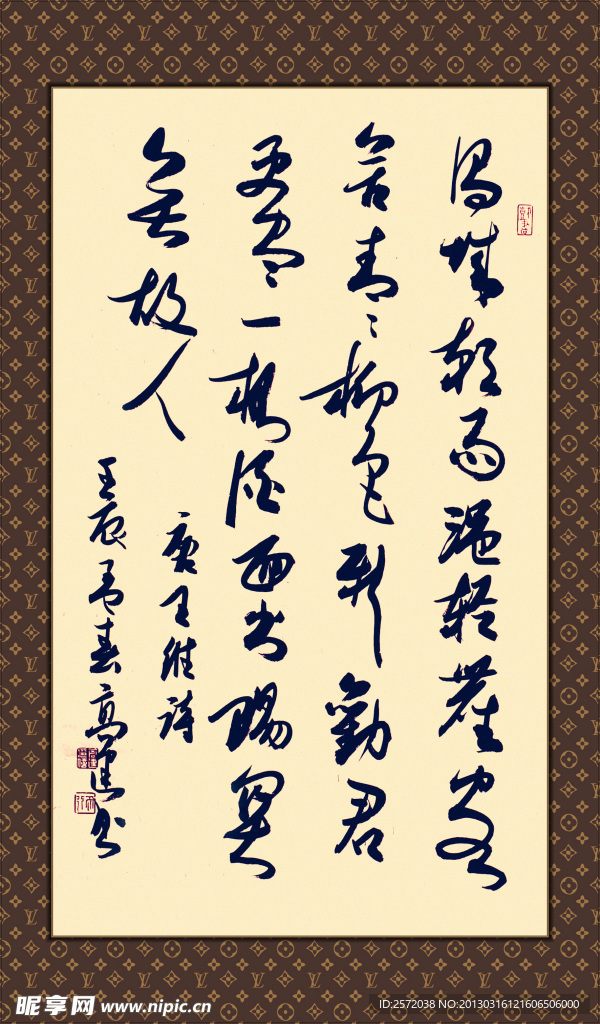 渭城朝雨浥輕塵客
舍青々柳色新勸君
更盡一杯酒西出陽關
無故人
唐王維詩
壬辰孟春高書
昵享网 www.nipic.cn
ID:2572038 NO:20130316121606506000